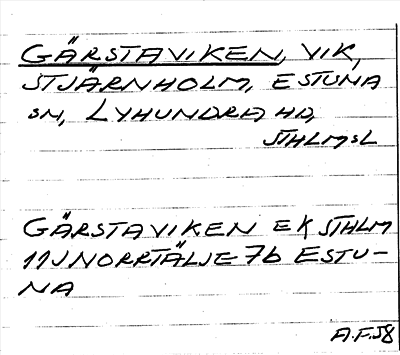 GÄRSTAVIKEN, VIK,
STJÄRNHOLM, ESTUNA
SN, LYHUNDRA HD,
STHLMSL
GÄRSTAVIKEN EK STHLM
11J NORRTÄLJE 7b ESTU-
NA
A.F.58